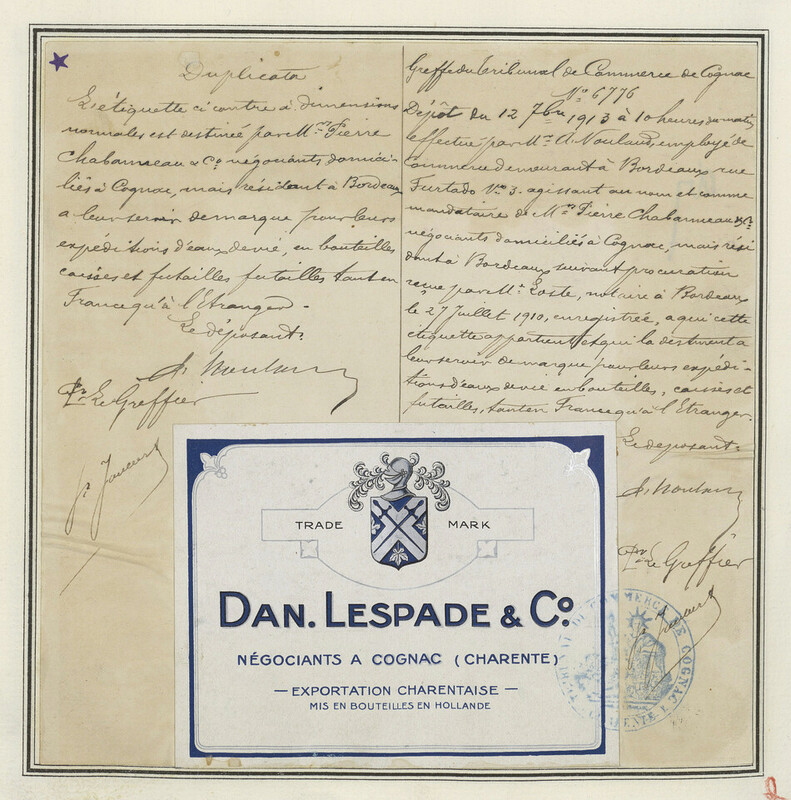 Duplicata
L'étiquette ci contre à dimensions
normales est destinée par MM. Pierre
Chabanneau & Co négociants domici-
liés à Cognac, mais résidant à Bordeaux
a leur servir de marque pour leurs
expéditions d'eaux de vie, en bouteilles
caisses et futailles futailles tant en
France qu'à l'Etranger.
Le déposant:
Pr Le Greffier
Greffe du Tribunal de Commerce de Cognac
No 6776
Dépôt du 12 7bre 1913 à 10 heures du matin
effectué par Mr A. Moulard, employé de
commerce demeurant à Bordeaux rue
Furtado No 3. agissant au nom et comme
mandataire de MM. Pierre Chabanneau & Co
négociants domiciliés à Cognac, mais rési
dant à Bordeaux suivant procuration
reçue par Me Loste, notaire à Bordeaux
le 27 Juillet 1910, enregistrée, a qui cette
étiquette appartient et qui la destinent a
leur servir de marque pour leurs expédi-
tions d'eaux de vie en bouteilles, caisses et
futailles, tant en France qu'à l'Etranger.
Le déposant:
Pr Le Greffier
TRADE MARK
DAN. LESPADE & Co.
NÉGOCIANTS A COGNAC (CHARENTE)
— EXPORTATION CHARENTAISE —
MIS EN BOUTEILLES EN HOLLANDE
TRIBUNAL DE COMMERCE DE COGNAC